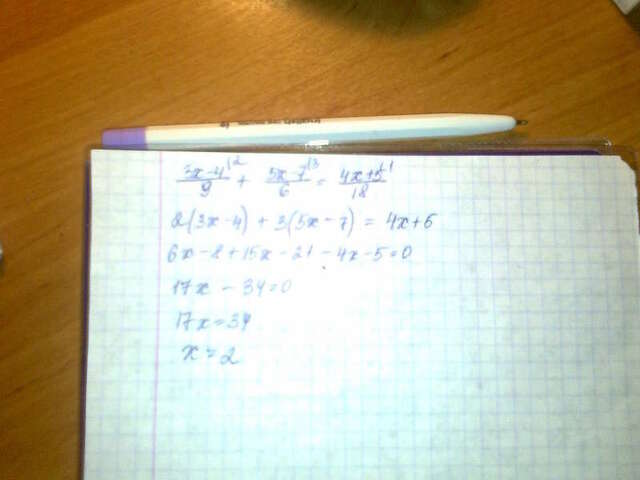 (3x-4)/9 |2 + (5x-7)/6 |3 = (4x+5)/18 |1
2(3x-4) + 3(5x-7) = 4x+5
6x-8+15x-21-4x-5=0
17x - 34=0
17x=34
x=2